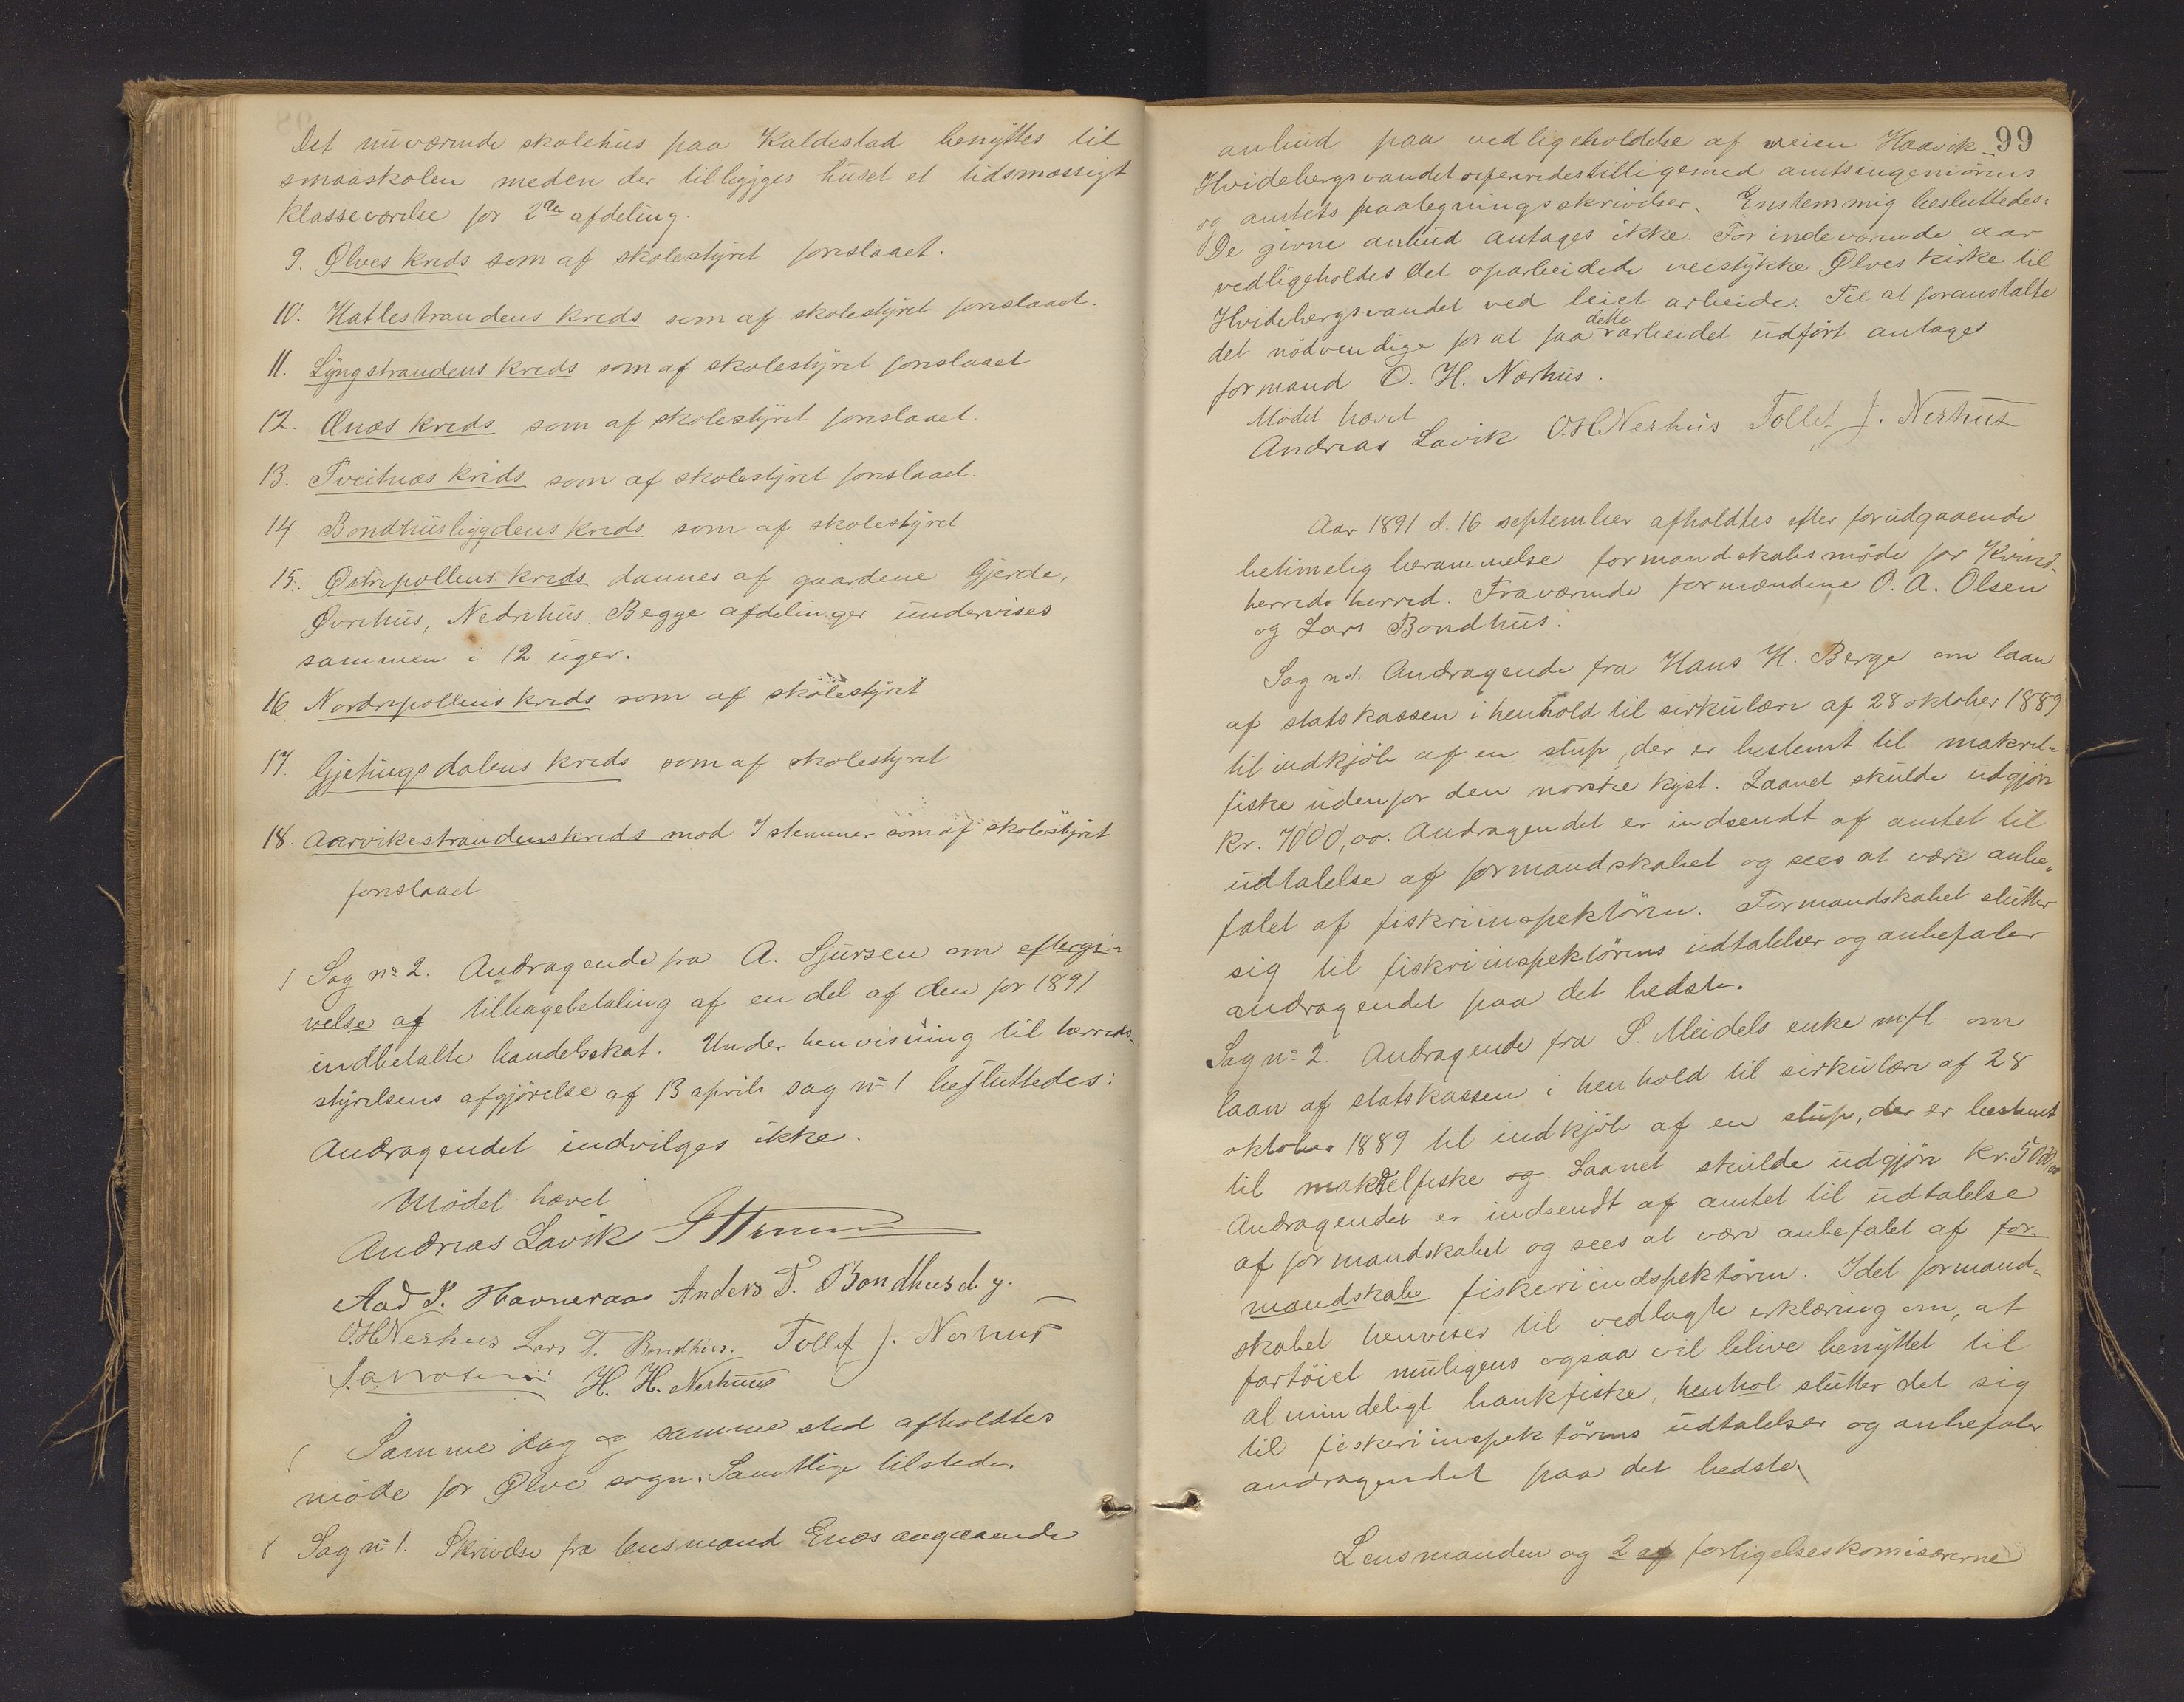 Det nuværende skolehus paa Kaldestad benyttes til
smaaskolen meden der tilbygges huset et tidsmæssigt
klasseværelse for 2den afdeling.
9. Ølves kreds som af skolestyret foreslaaet.
10. Hatlestrandens kreds som af skolestyret foreslaaet.
11. Lyngstrandens kreds som af skolestyret foreslaaet
12. Ænæs kreds som af skolestyret foreslaaet.
13. Tveitnæs kreds som af skolestyret foreslaaet.
14. Bondhusbygdens kreds som af skolestyret
15. Østrepollens kreds dannes af gaardene Gjerde,
Øvrehus, Nedrehus. Begge afdelinger undervises
sammen i 12 uger.
16 Nordrepollens kreds som af skolestyret
17. Gjetingsdalens kreds som af skolestyret
18. Aarvikestrandens kreds mod 7 stemmer som af skolestyret
foreslaaet
Sag no 2. Andragende fra A. Sjursen om eftergi-
velse af tilbagebetaling af en del af den for 1891
indbetalte handelsskat. Under henvisning til herreds-
styrelsens afgjørelse af 13 april sag no 1 besluttedes:
Andragendet indvilges ikke.
Mødet hævet
Andreas Lavik
Aad S. Havneraas Anders T. Bondhus d. y.
O.H.Nerhus Lars T. Bondhus. Tollef J. Nerhus
H. H. Nerhuus
Samme dag og samme sted afholdtes
møde for Ølve sogn. Samtlige tilstede.
Sag no 1. Skrivelse fra lensmand Enæs angaaende
99
anbud paa vedligeholdelse af veien Haavik-
Hvidebergsvandet tilligemed amtsingeniørens
og amtets paategningsskrivelser. Enstemmig besluttedes:
De givne anbud antages ikke. For indeværende aar
vedligeholdes det oparbeidede veistykke Ølves kirke til
Hvidebergsvandet ved leiet arbeide. Til at foranstalte
det nödvendige for at faa dette arbeidet udført antages
formand O. H. Nærhus.
Mødet hævet
Andreas Lavik O.H.Nerhus Tollef J. Nerhus
Aar 1891 d. 16 september afholdtes efter forudgaaende
betimelig berammelse formandskabsmøde for Kvind-
herreds herred. Fraværende formændene O. A. Olsen
og Lars Bondhus.
Sag no 1. Andragende fra Hans H. Berge om laan
af statskassen i henhold til sirkulære af 28 oktober 1889
til indkjøb af en slup, der er bestemt til makrel-
fiske udenfor den norske kyst. Laanet skulde udgjøre
kr. 7000,00. Andragendet er indsendt af amtet til
udtalelse af formandskabet og sees at være anbe-
falet af fiskeriinspektøren. Formandskabet slutter
sig til fiskeriinspektørens udtalelser og anbefaler
andragendet paa det bedste.
Sag no 2. Andragende fra S. Meidels enke m.fl. om
laan af statskassen i henhold til sirkulære af 28
oktober 1889 til indkjøb af en slup, der er bestemt
til makrelfiske og. Laanet skulde udgjøre kr. 5000,00
Andragendet er indsendt af amtet til udtalelse
af formandskabet og sees at være anbefalet af for-
mandskabe fiskeriindspektøren. Idet formand-
skabet henviser til vedlagte erklæring om, at
fartøiet muligens ogsaa vil blive benyttet til
almindeligt bankfiske, henhol slutter det sig
til fiskeriinspektørens udtalelser og anbefaler
andragendet paa det bedste.
Lensmanden og 2 af forligelseskomisærerne